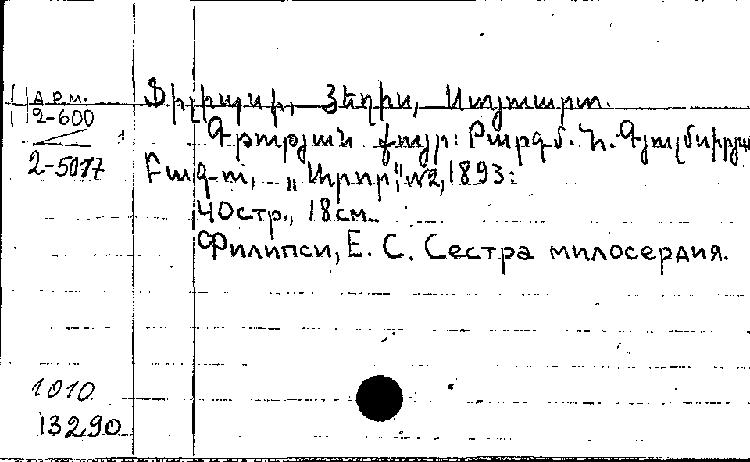 Арм.
2-600
2-5077
Ֆիլիպսի, Հենրի, Ստյուարտ.
Գթության քույր: Թարգմ.
Բաքու, „Արոր", №2, 1893:
40стр., 18см.
Филипси, Е. С. Сестра милосердия.
1010
13290